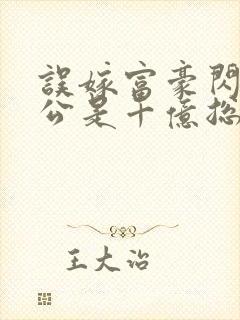 誤嫁富豪閃
公是十億總
王大治